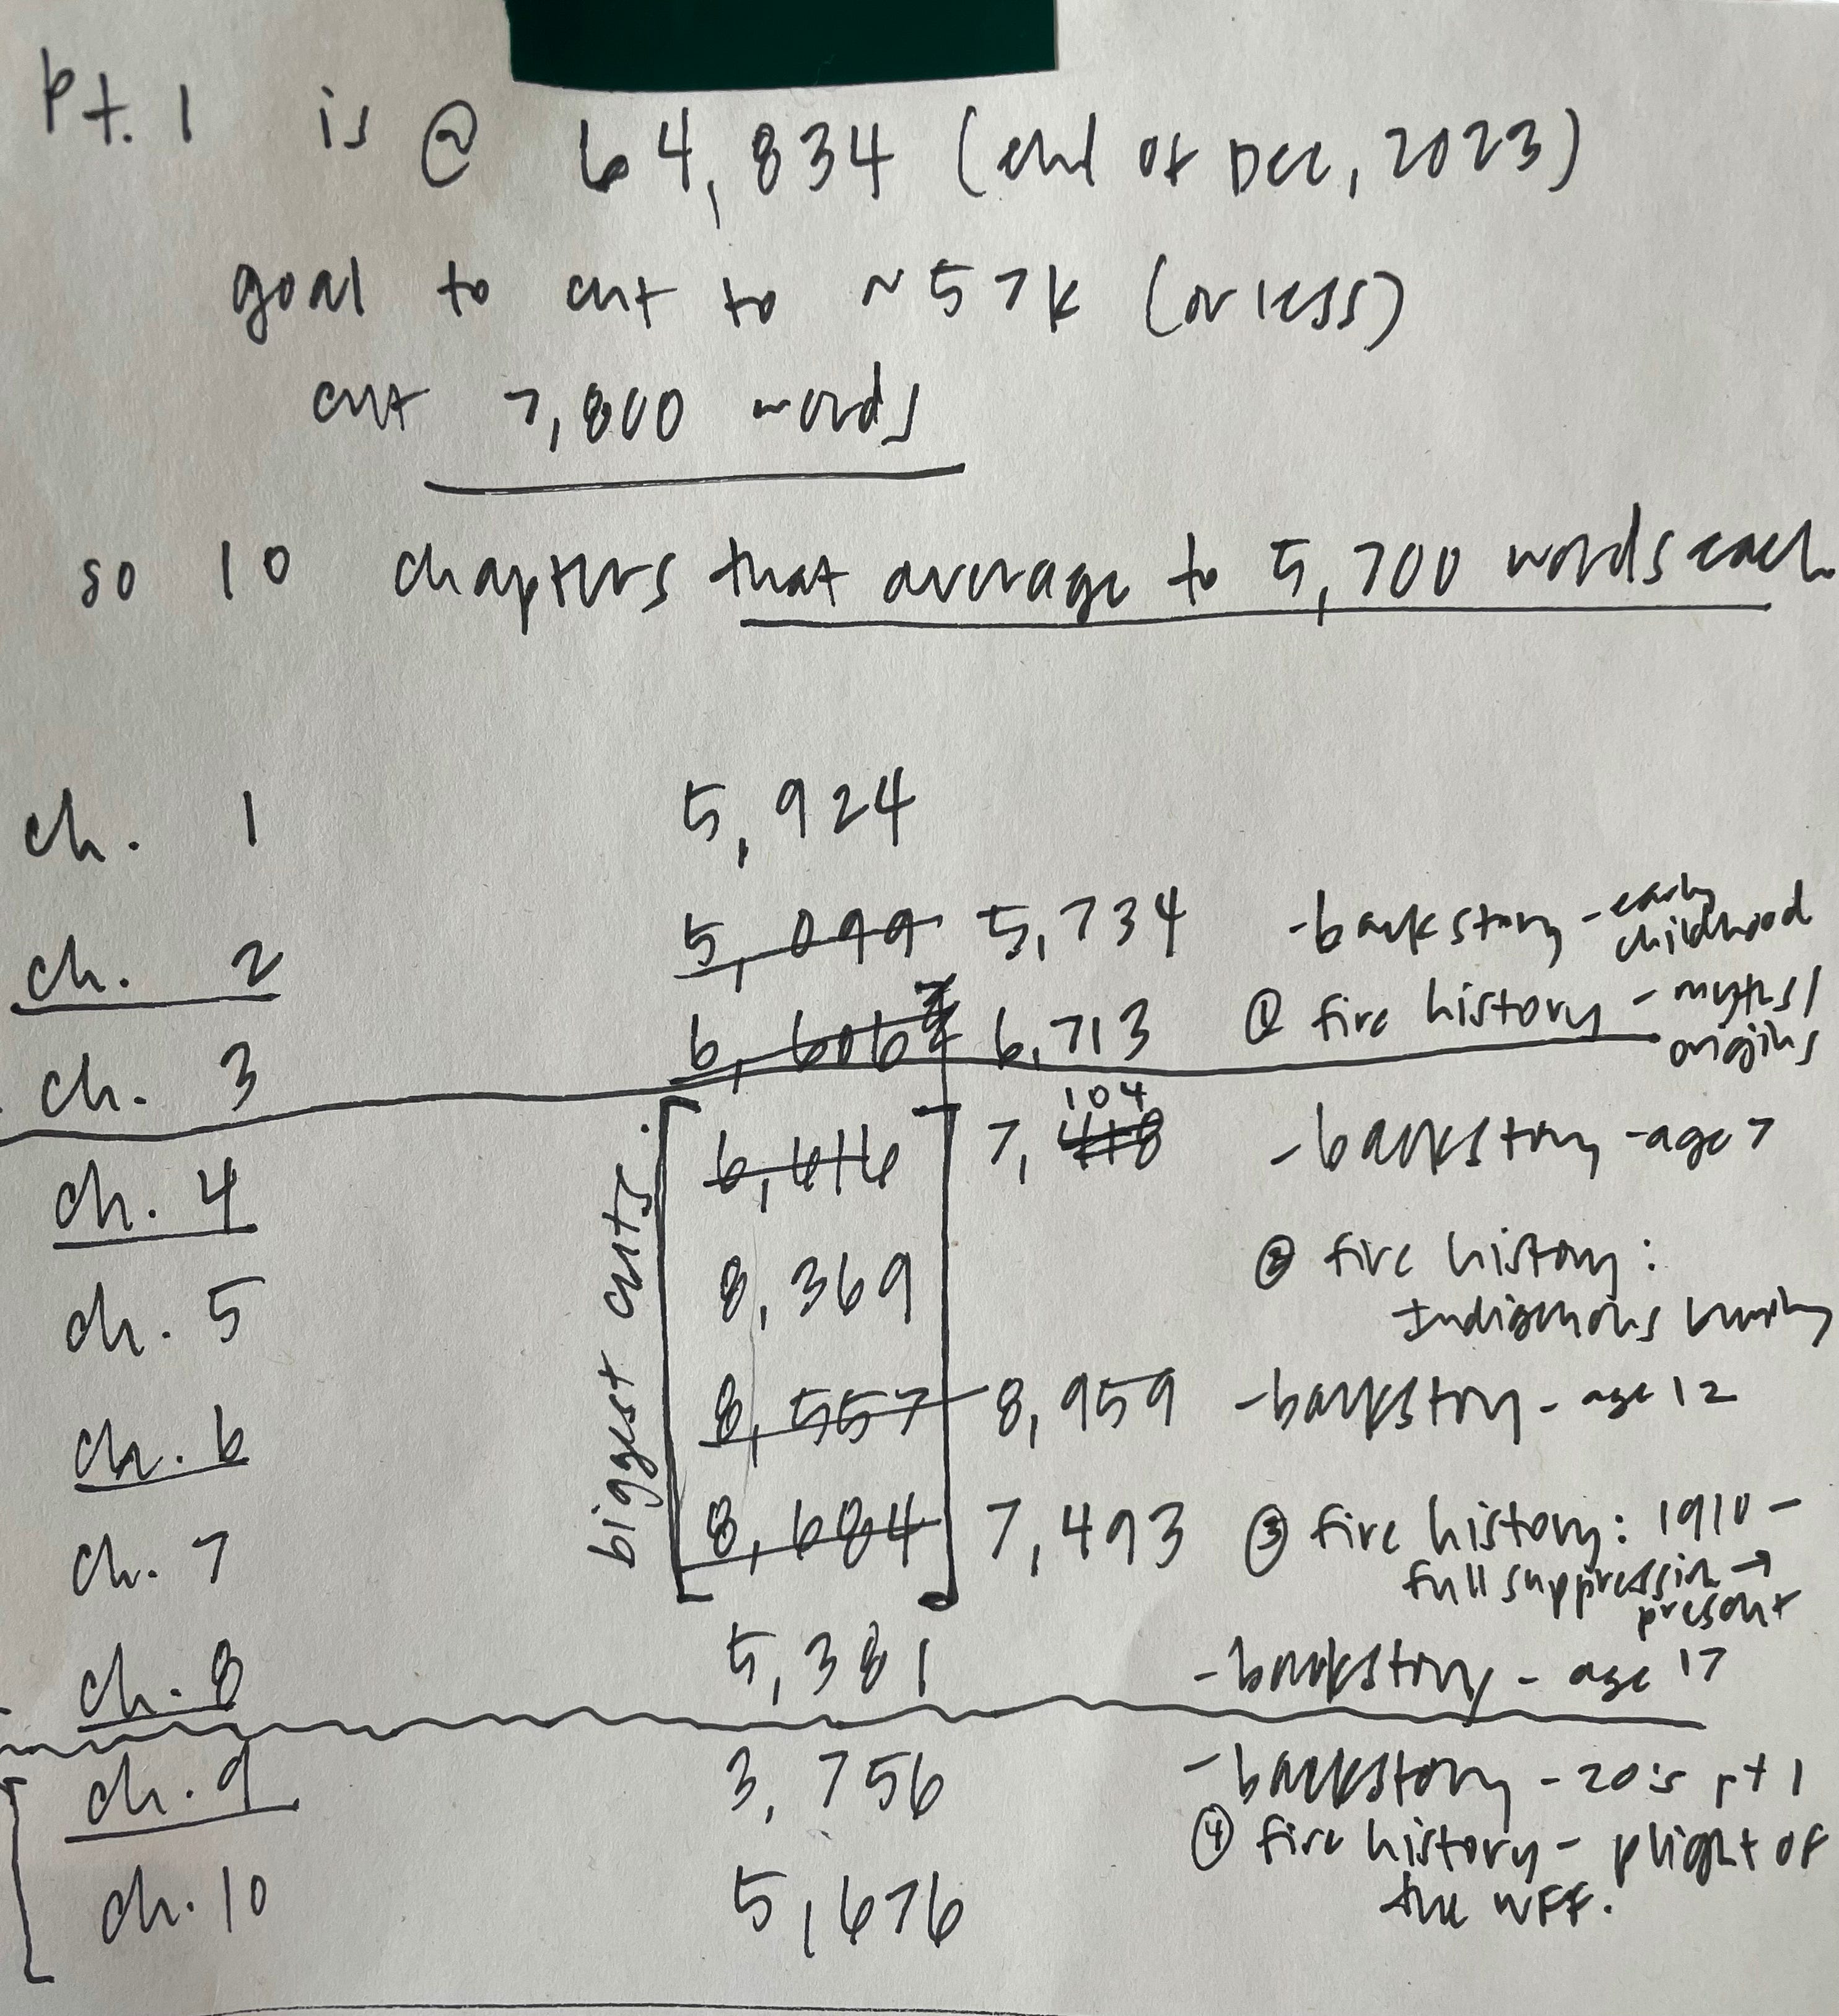 Pt. 1 is @ 64,834 (end of Dec, 2023)
goal to cut to ~57k (or less)
cut 7,800 words
so 10 chapters that average to 5,700 words each
ch. 1 5,924
ch. 2 5,099 5,734 -backstory - early childhood
ch. 3 6,713 ① fire history - myths/origins
biggest cuts
ch. 4 7,104 -backstory - age 7
ch. 5 8,369 ② fire history: Indigenous burning
ch. 6 8,557 8,959 -backstory - age 12
ch. 7 8,684 7,493 ③ fire history: 1910 -
full suppression →
present
ch. 8 5,381 -backstory - age 17
ch. 9 3,756 -backstory - 20's pt 1
ch. 10 5,676 ④ fire history - plight of
the WFF.